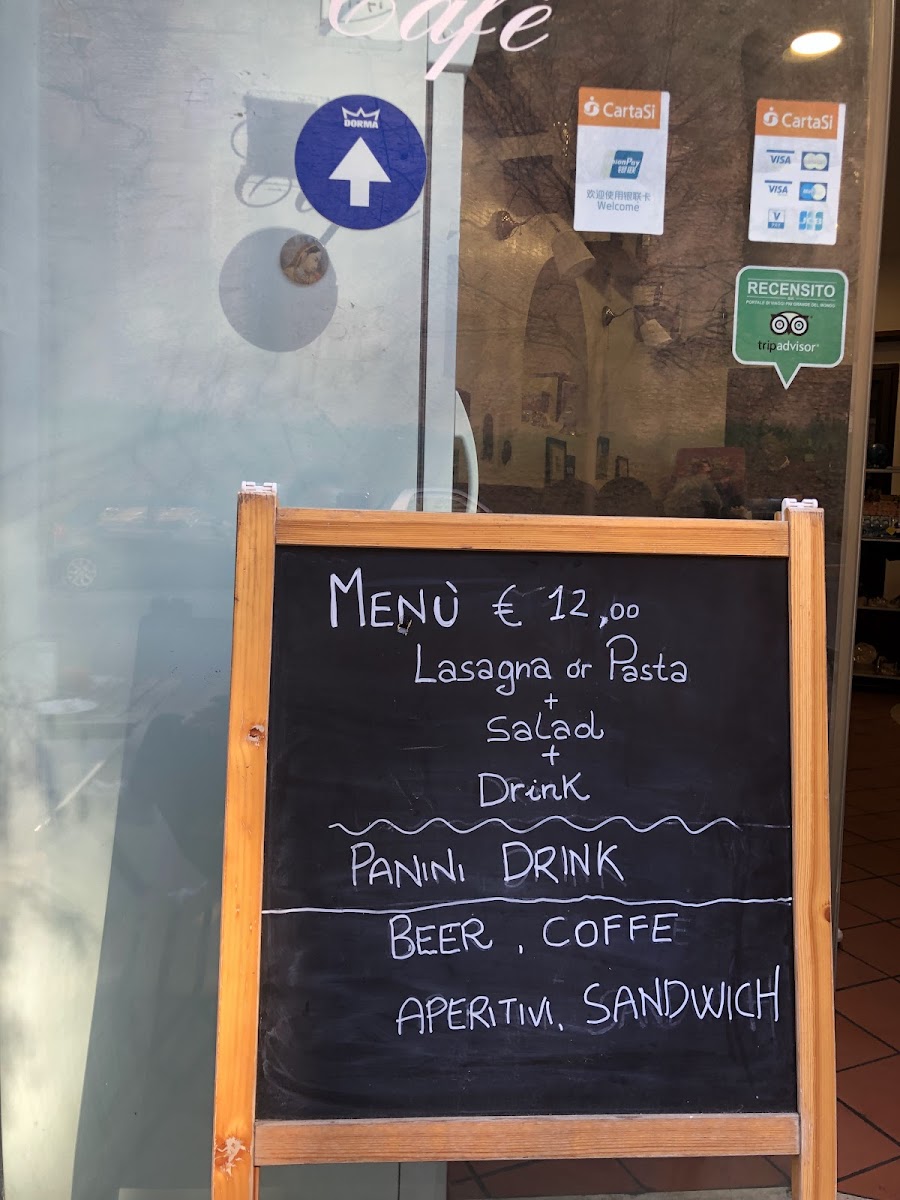 Café
DORMA
CartaSi
UnionPay
银联
欢迎使用银联卡
Welcome
CartaSi
VISA
VISA
V PAY
JCB
RECENSITO
SUL
PORTALE DI VIAGGI PIÙ GRANDE DEL MONDO
tripadvisor
MENÙ € 12,00
Lasagna or Pasta
+
Salad
+
Drink
PANINI DRINK
BEER, COFFE
APERITIVI, SANDWICH